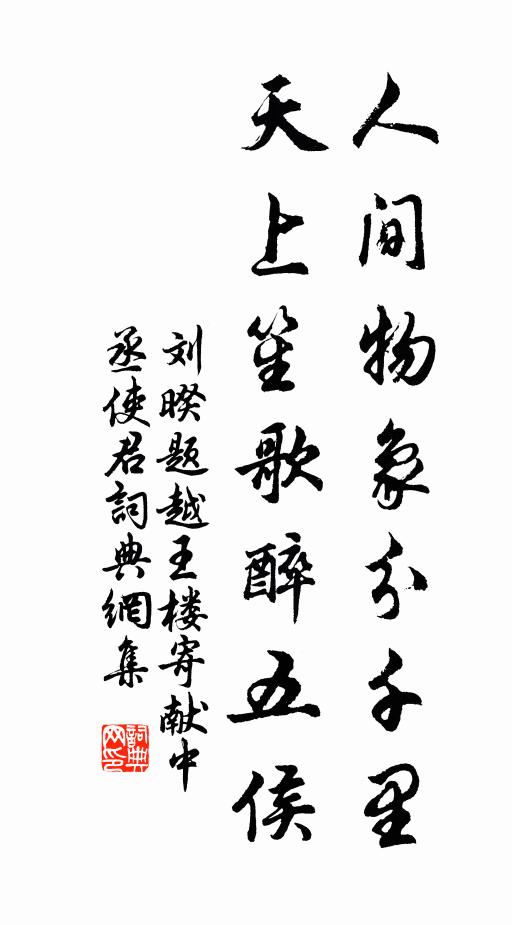 人间物象分千里
天上笙歌醉五侯
刘暌题越王楼寄献中
丞使君詞典網集
詞典
网印